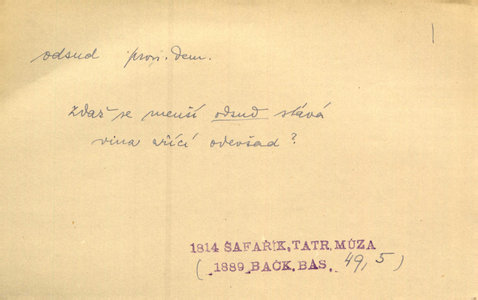 odsud
zdaž se menší odsud stává
vina odevšad?
1814 ŠAFAŘÍK, TATR. MÚZA
( 1889 BAČK. BÁS. 49, 5 )